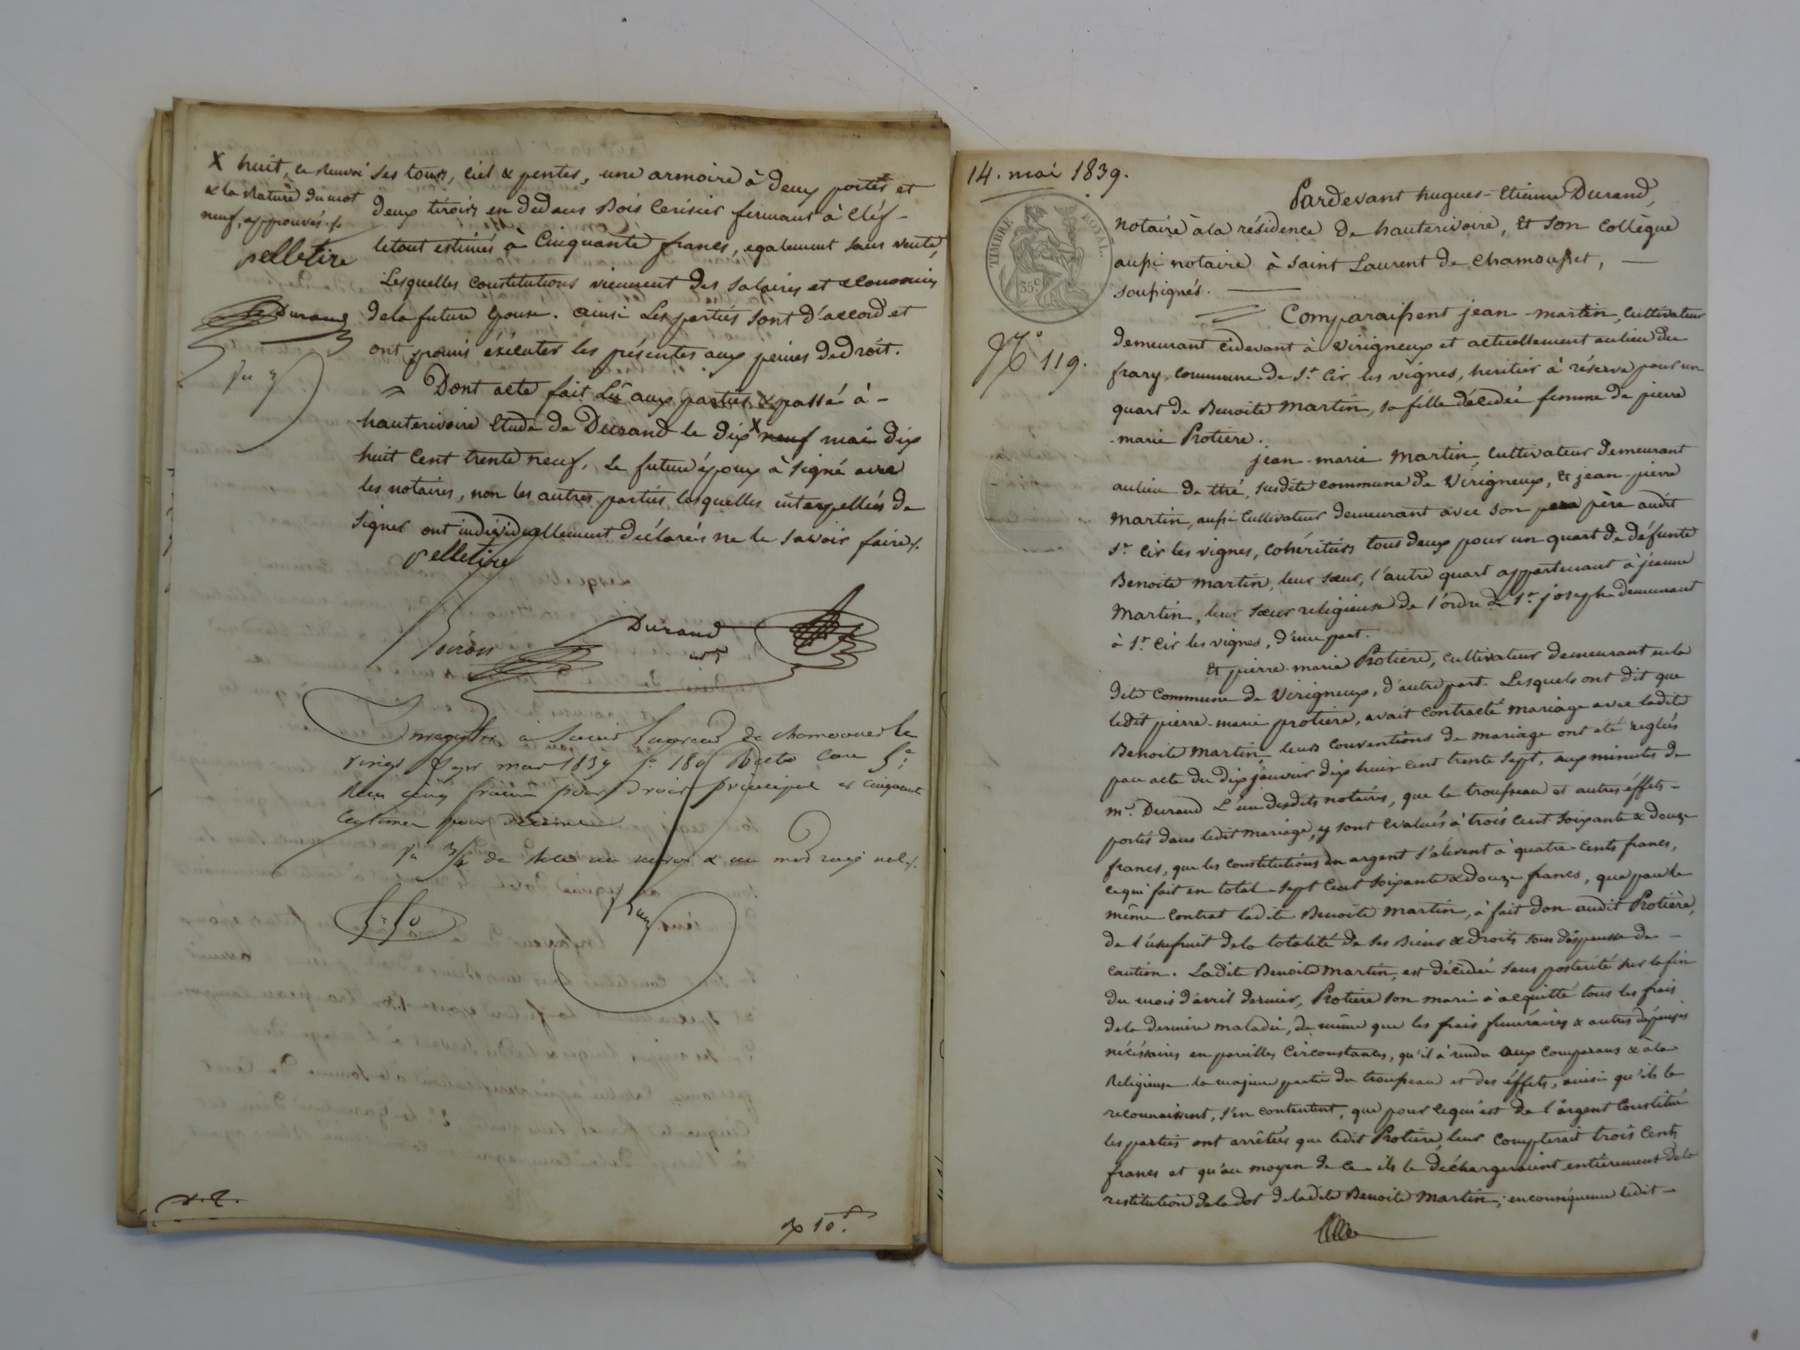 X huit, ce renvoi
& la rature du mot
neuf, approuvés ./.
pelletire
Durand
ses tours, ciel & pentes, une armoire à deux portes et
deux tiroirs en dedans bois cerisier fermant à cléf -
le tout estimés à Cinquante francs, également sans vente,
Lesquelles constitutions viennent des salaires et economies
de la future épouse. ainsi les parties sont d'accord et
ont promis éxécuter les présentes aux peines de droit.
Dont acte fait Lû aux parties & passé à -
hauterivoire Etude de Durand le dix X neuf mai dix
huit cent trente neuf. Le future époux à signé avec
les notaires, non les autres parties lesquelles interpellées de
signer ont individuellement déclarés ne le savoir faire ./.
pelletire
Durand
nre
Enregistré à Saint Laurent de chamousset le
vingt mai 1839 fo 180 Recto Case 5e
Reçu cinq francs pour droit principal et cinquante
centimes pour décime
14. mai 1839.
TIMBRE ROYAL.
35 c
No 119.
Pardevant hugues-Etienne Durand,
notaire à la résidence de hauterivoire, Et son collègue
aussi notaire à Saint Laurent de chamousset, —
soussignés. —
Comparaissent jean-martin, cultivateur
demeurant cidevant à virigneux et actuellement au lieu du
frary, commune de St. Cir les vignes, heritier à réserve pour un
quart de Benoite Martin, sa fille décédée femme de pierre
-marie Protiere.
jean-marie Martin, cultivateur demeurant
au lieu de thré, susdite commune de Virigneux, Et jean-pierre
Martin, aussi cultivateur demeurant avec son père audit
St. Cir les vignes, cohéritiers tous deux pour un quart de défunte
Benoite Martin, leur sœur, l'autre quart appartenant à jeanne
Martin, leur sœur religieuse de l'ordre de St. joseph demeurant
à St. Cir les vignes, d'une part.
Et pierre-marie Protiere, cultivateur demeurant en la
dite commune de Virigneux, d'autre part. Lesquels ont dit que
ledit pierre-marie protiere, avait contracté mariage avec ladite
Benoite Martin, leurs conventions de mariage ont été reglés
par acte du dix janvier dix huit cent trente sept, aux minutes de
me. Durand L'un desdits notaires, que le trousseau et autres éffets -
portés dans ledit mariage, y sont évalués à trois cent soixante & douze
francs, que les constitutions en argent s'elevent à quatre cents francs,
ce qui fait en total sept cent soixante & douze francs, que par le
même contrat ladite Benoite Martin, à fait don audit Protière,
de l'usufruit de la totalité de ses biens & droits sous dispense de -
caution. Ladite Benoite Martin, est décédée sans posterité sur la fin
du mois d'avril dernier, Protiere son mari à acquitté tous les frais
de la derniere maladie, de même que les frais funéraires & autres dépenses
nécéssaires en pareilles circonstances, qu'il à rendu aux comparans & à la
Religieuse la majeure partie du trousseau et des éffets, ainsi qu'ils le
reconnaissent, s'en contentent, que pour ce qui est de l'argent constitué
les parties ont arrêtées que ledit Protiere, leur compterait trois cents
francs et qu'au moyen de ce ils le déchargeraient entièrement de la
restitution de la dot de ladite Benoite Martin; en conséquence ledit -